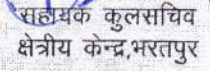 सहायक कुलसचिव
क्षेत्रीय केन्द्र,भरतपुर